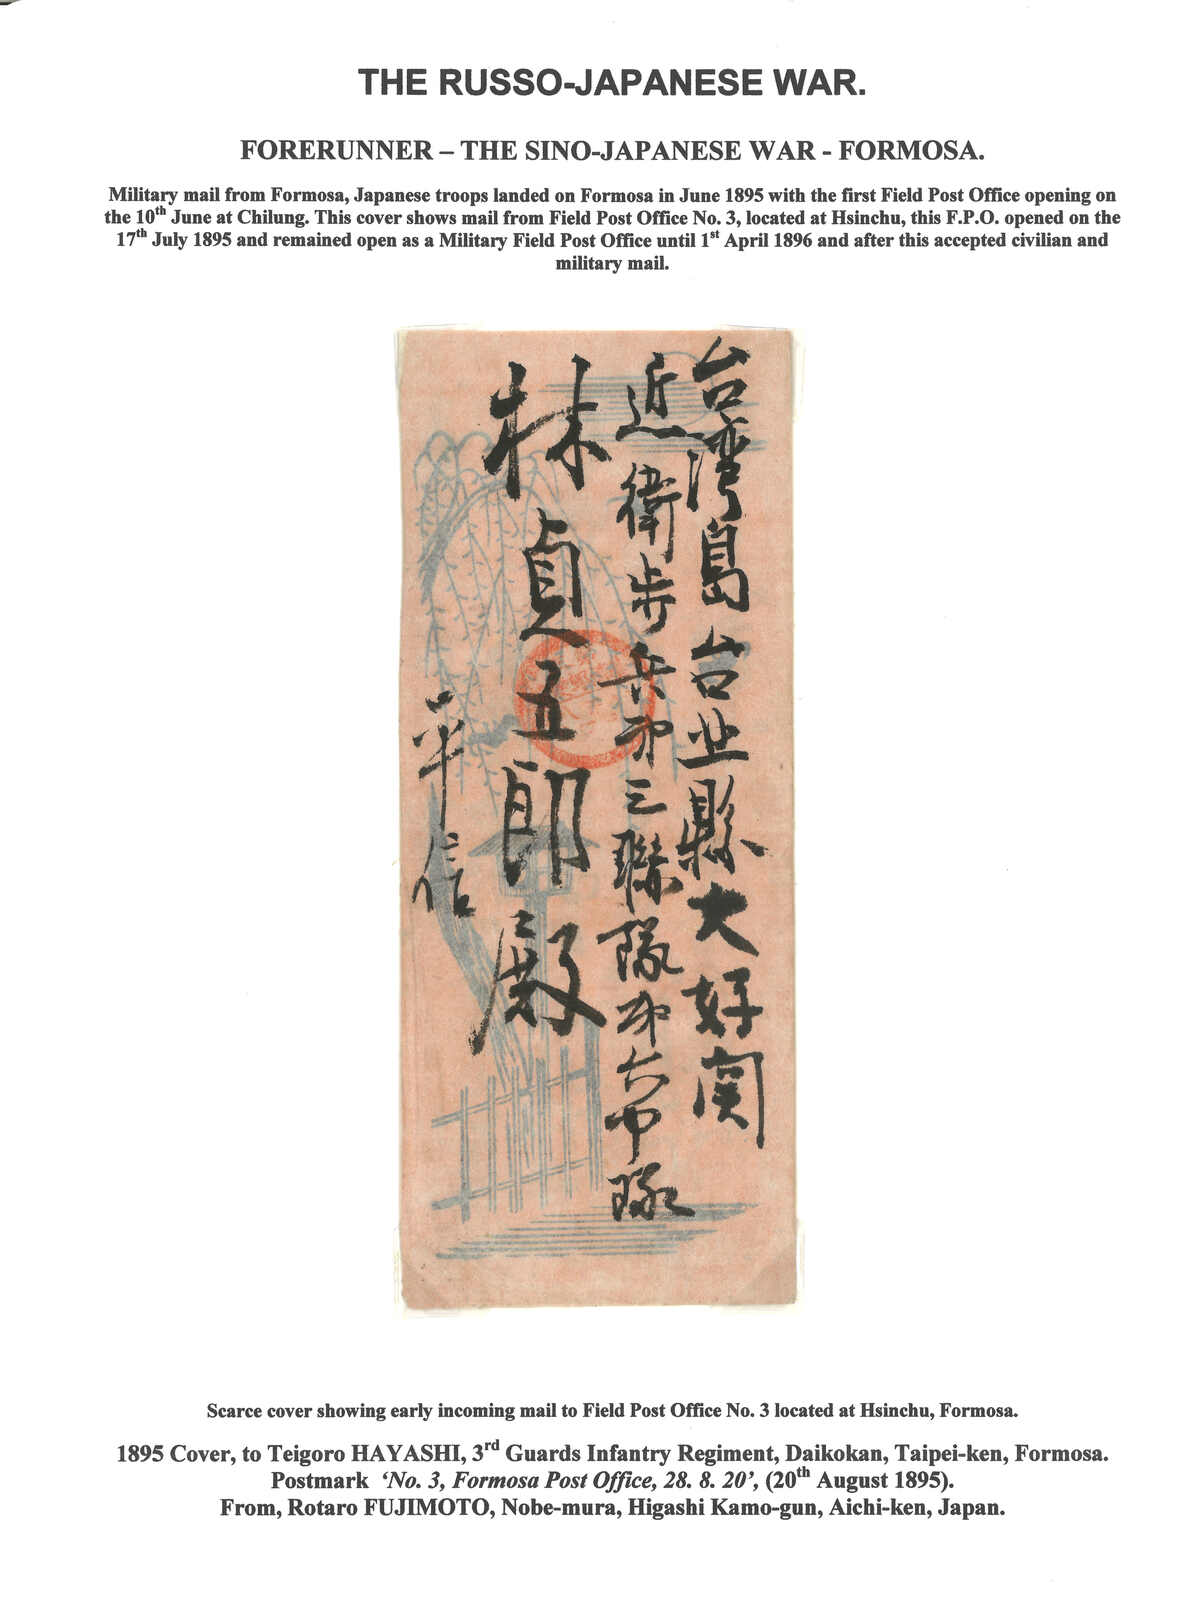 THE RUSSO-JAPANESE WAR.
FORERUNNER – THE SINO-JAPANESE WAR - FORMOSA.
Military mail from Formosa, Japanese troops landed on Formosa in June 1895 with the first Field Post Office opening on
the 10th June at Chilung. This cover shows mail from Field Post Office No. 3, located at Hsinchu, this F.P.O. opened on the
17th July 1895 and remained open as a Military Field Post Office until 1st April 1896 and after this accepted civilian and
military mail.
台湾島台北縣大好関
近衛歩兵第三聯隊第六中隊
林貞五郎殿
平信
Scarce cover showing early incoming mail to Field Post Office No. 3 located at Hsinchu, Formosa.
1895 Cover, to Teigoro HAYASHI, 3rd Guards Infantry Regiment, Daikokan, Taipei-ken, Formosa.
Postmark ‘No. 3, Formosa Post Office, 28. 8. 20’, (20th August 1895).
From, Rotaro FUJIMOTO, Nobe-mura, Higashi Kamo-gun, Aichi-ken, Japan.